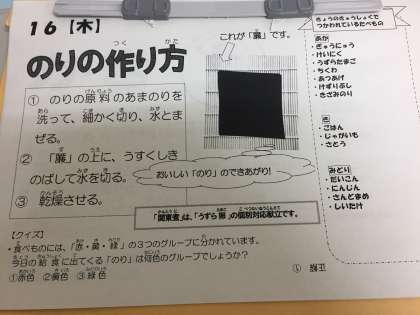 16【木】
のりの作り方
これが「簾」です。
① のりの原料のあまのりを
洗って、細かく切り、水とま
ぜる。
② 「簾」の上に、うすくしき
のばして水を切る。
③ 乾燥させる。
おいしい「のり」のできあがり!
「関東煮」は、「うずら卵」の個別対応献立です。
【クイズ】
・食べものには、「赤・黄・緑」の3つのグループに分かれています。
今日の給食に出てくる「のり」は何色のグループでしょうか?
①赤色 ②黄色 ③緑色
正解 ①
きょうのきゅうしょくで
つかわれているたべもの
あか
・ぎゅうにゅう
・けいにく
・うずらたまご
・ちくわ
・あつあげ
・けずりぶし
・きざみのり
き
・ごはん
・じゃがいも
・さとう
みどり
・だいこん
・にんじん
・さんどまめ
・しいたけ